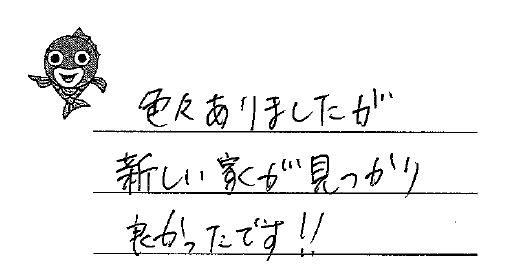 色々ありましたが
新しい家が見つかり
良かったです!!